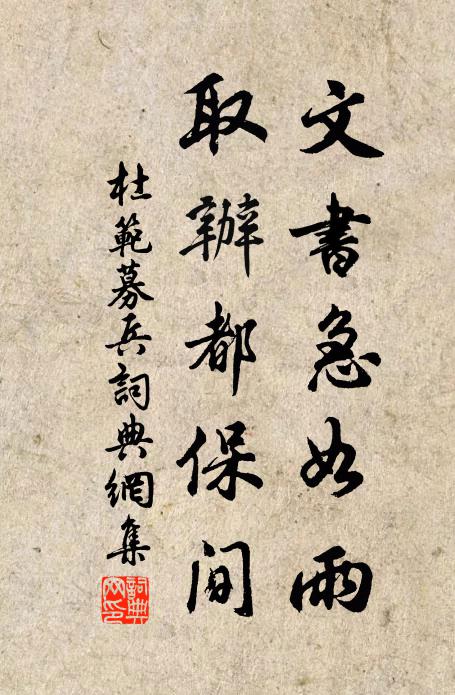 文書急如雨
取辦都保間
杜範募兵詞典網集
詞典网印